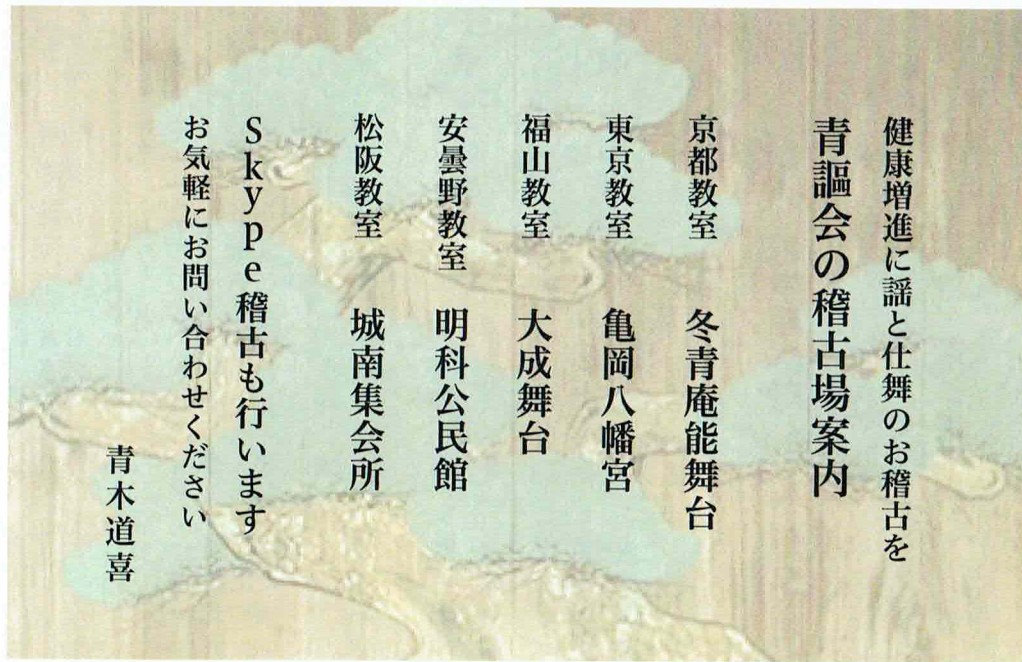 健康増進に謡と仕舞のお稽古を
青謳会の稽古場案内
京都教室 冬青庵能舞台
東京教室 亀岡八幡宮
福山教室 大成舞台
安曇野教室 明科公民館
松阪教室 城南集会所
Skype稽古も行います
お気軽にお問い合わせください
青木道喜